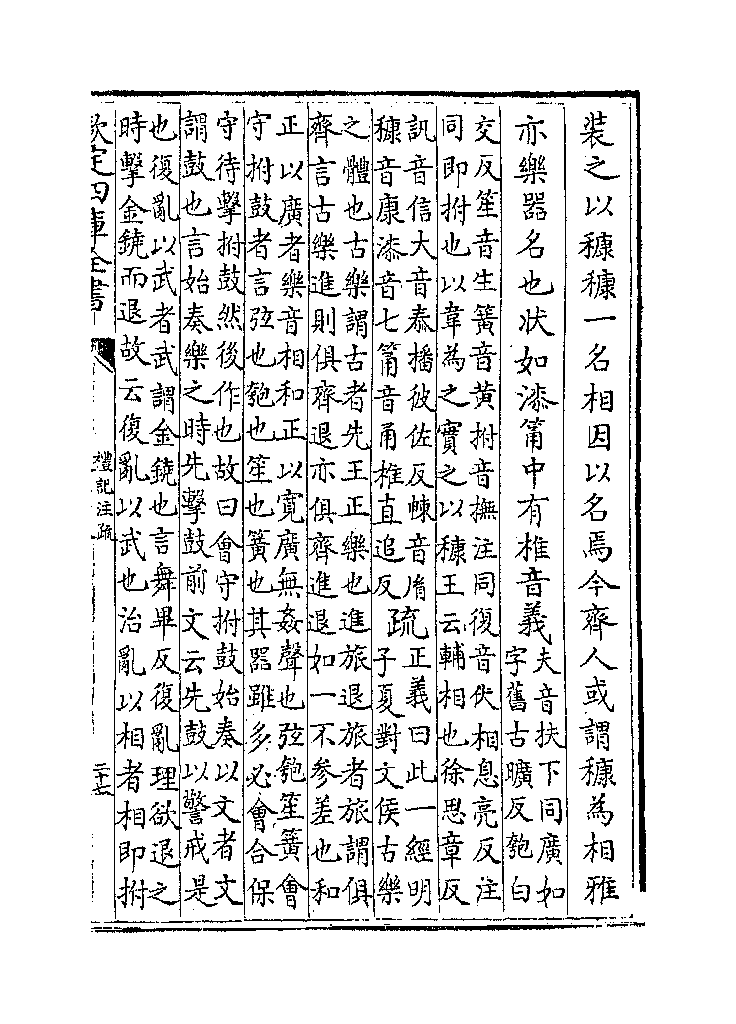 裝之以穅穅一名相因以名焉今齊人或謂穅為相雅
亦樂器名也狀如漆筩中有椎音義夫音扶下同廣如
字舊古曠反匏白
交反笙音生簧音黄拊音撫注同復音伏相息亮反注
同即拊也以韋為之實之以穅王云輔相也徐思章反
訊音信大音泰播彼佐反㯥音胤
穅音康漆音七筩音甬椎直追反
疏正義曰此一經明
子夏對文侯古樂
之體也古樂謂古者先王正樂也進旅退旅者旅謂俱
齊言古樂進則俱齊退亦俱齊進退如一不參差也和
正以廣者樂音相和正以寛廣無姦聲也弦匏笙簧會
守拊鼓者言弦也匏也笙也簧也其器雖多必會合保
守待擊拊鼓然後作也故曰會守拊鼓始奏以文者文
謂鼓也言始奏樂之時先擊鼓前文云先鼓以警戒是
也復亂以武者武謂金鐃也言舞畢反復亂理欲退之
時擊金鐃而退故云復亂以武也治亂以相者相即拊
欽定四庫全書
禮記注疏
二十七